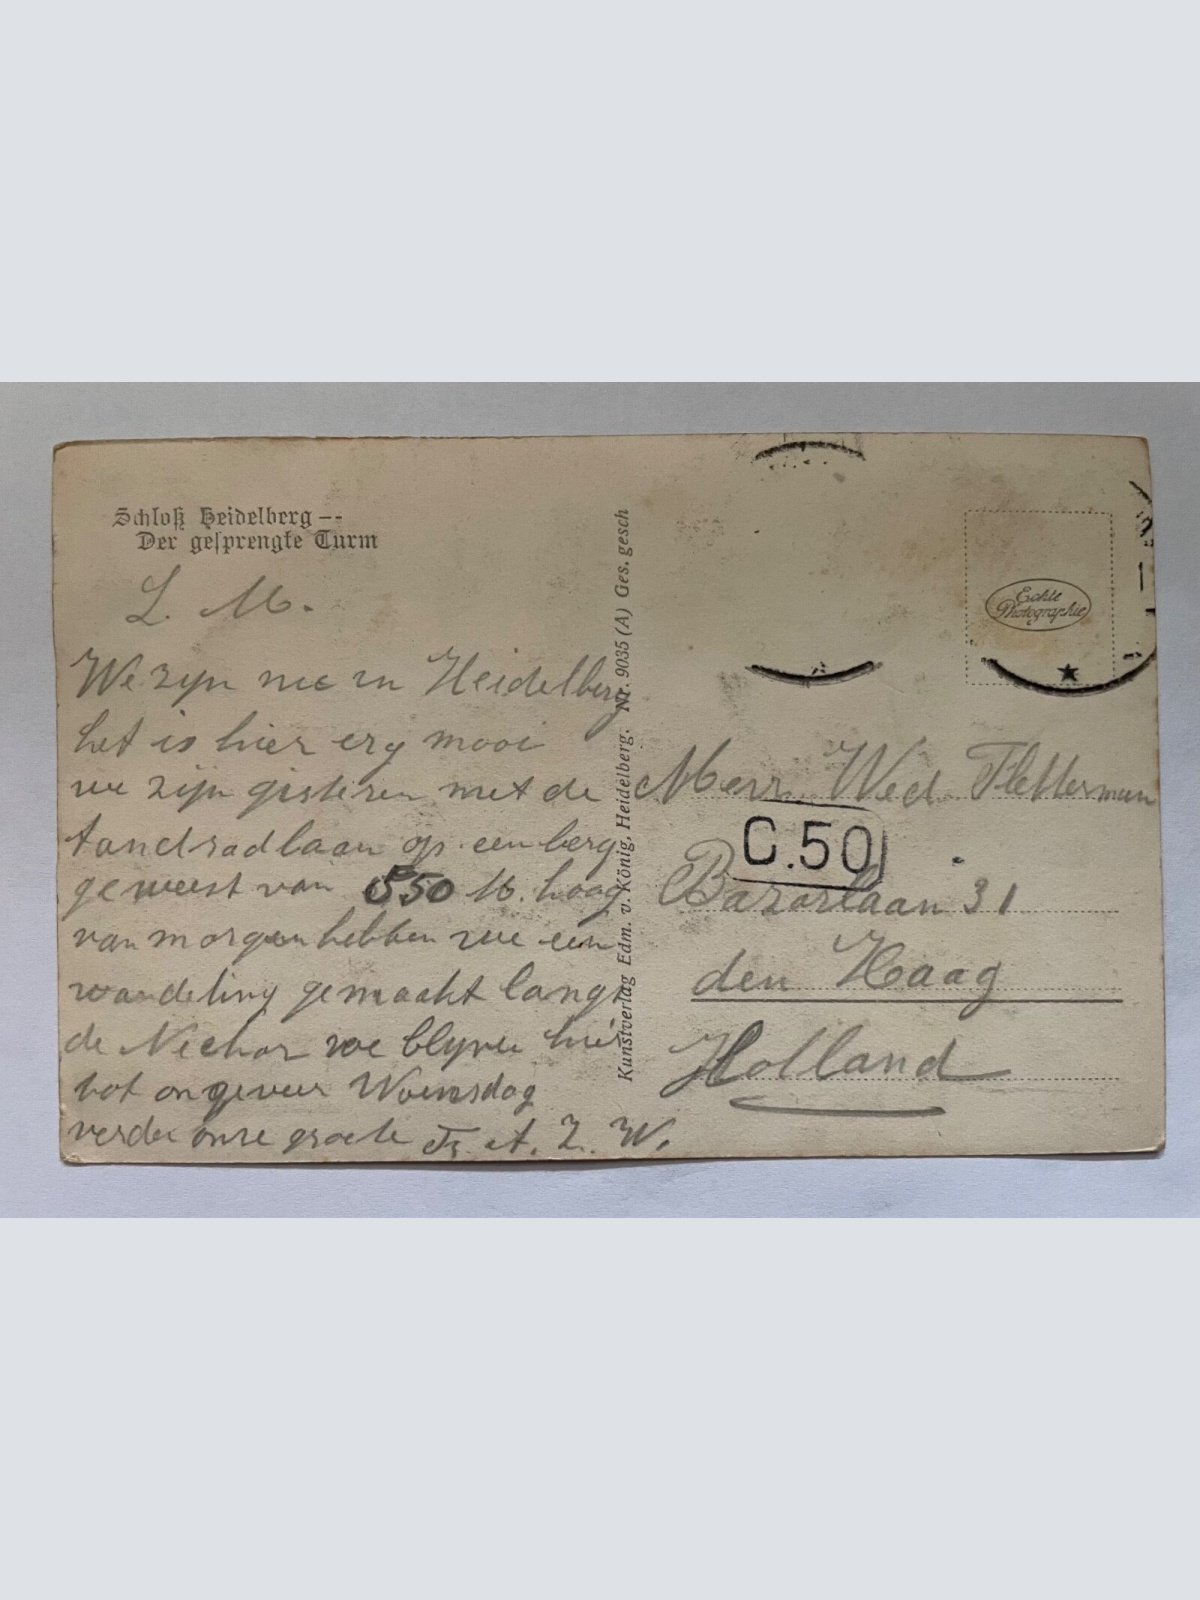 Schloß Heidelberg --
Der gesprengte Turm
L. M.
We zyn nu in Heidelberg
het is hier erg mooi
we zijn gisteren met de
tandradlaan op een berg
geweest van 550 M. hoog
van morgen hebben we een
wandeling gemaakt langs
de Nechar we blyven hier
tot ongeveer Woensdag
verder onze groete
Kunstverlag Edm. v. König, Heidelberg. Nr. 9035 (A) Ges. gesch
Echte
Photographie
Wed Fletterman
C.50
Bazarlaan 31
den Haag
Holland